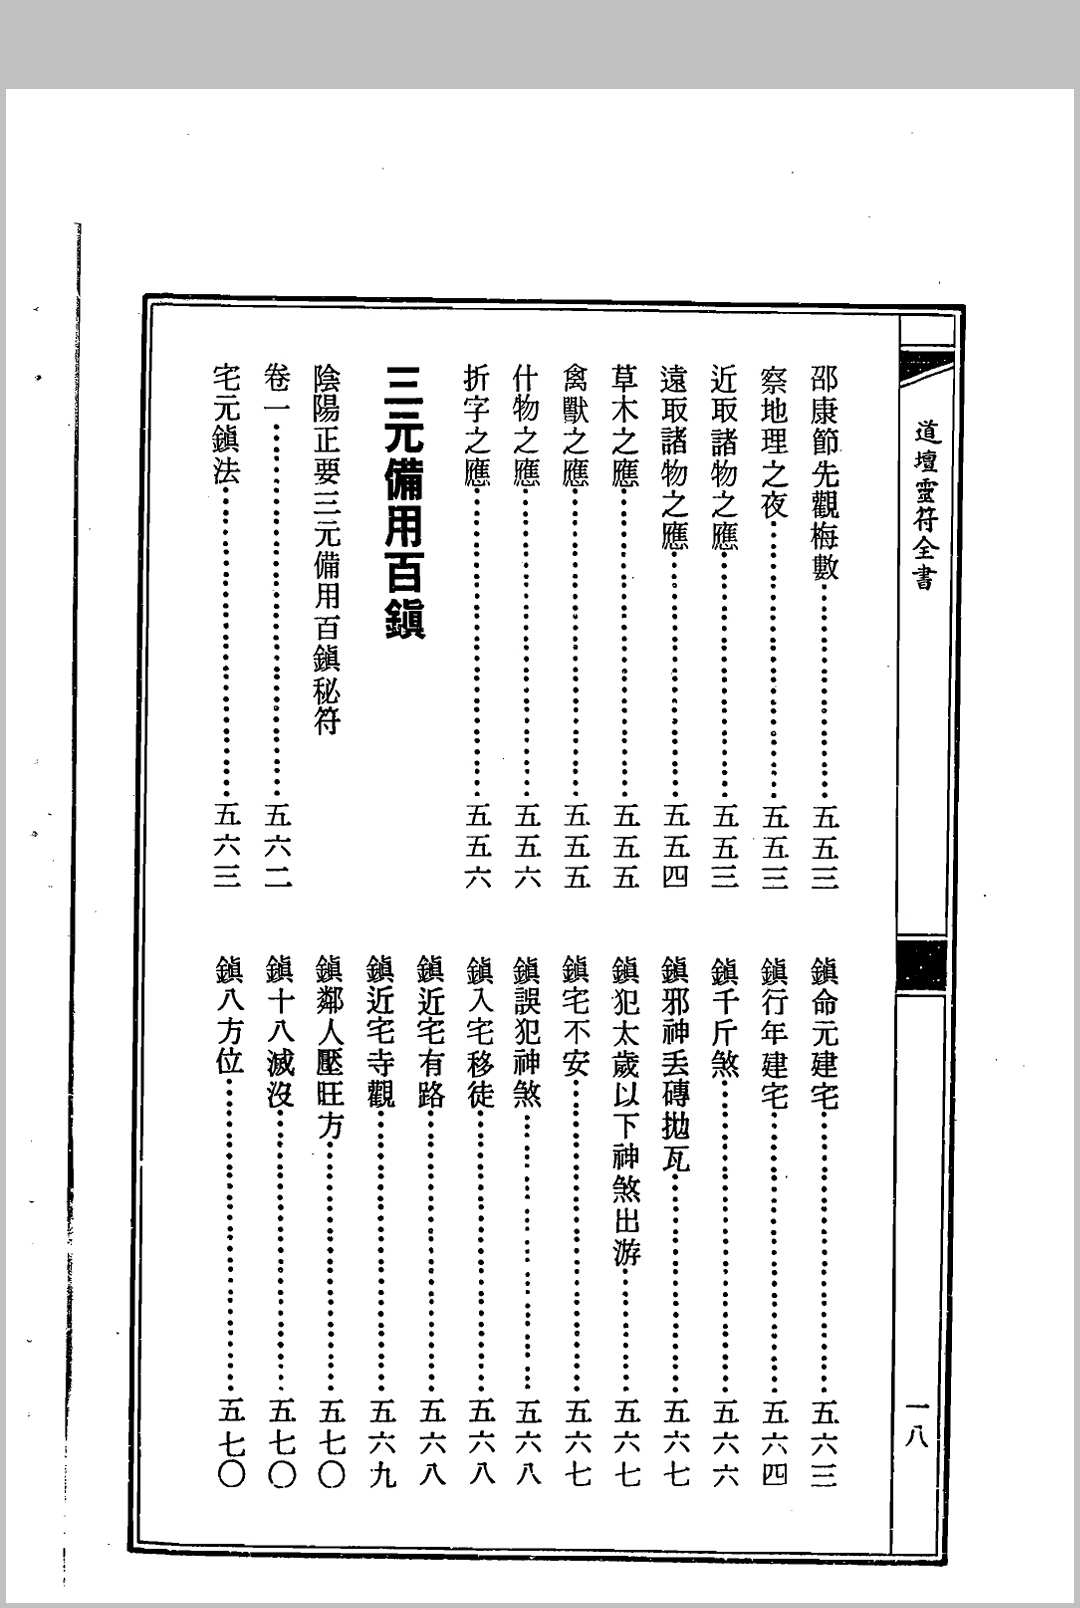 道壇靈符全書
一八
邵康節先觀梅數⋯⋯五五三
察地理之夜⋯⋯五五三
近取諸物之應⋯⋯五五三
遠取諸物之應⋯⋯五五四
草木之應⋯⋯五五五
禽獸之應⋯⋯五五五
什物之應⋯⋯五五六
折字之應⋯⋯五五六
三元備用百鎮
陰陽正要三元備用百鎮秘符
卷一⋯⋯五六二
宅元鎮法⋯⋯五六三
鎮命元建宅⋯⋯五六三
鎮行年建宅⋯⋯五六四
鎮千斤煞⋯⋯五六六
鎮邪神丢磚拋瓦⋯⋯五六七
鎮犯太歲以下神煞出游⋯⋯五六七
鎮宅不安⋯⋯五六七
鎮誤犯神煞⋯⋯五六八
鎮入宅移徒⋯⋯五六八
鎮近宅有路⋯⋯五六八
鎮近宅寺觀⋯⋯五六九
鎮鄰人壓旺方⋯⋯五七〇
鎮十八滅沒⋯⋯五七〇
鎮八方位⋯⋯五七〇